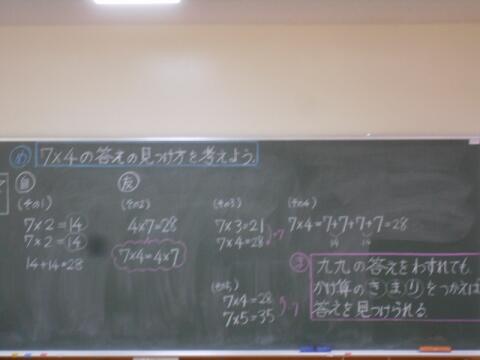 め 7×4の答えの見つけ方を考えよう。
自
(その1)
7×2=14
7×2=14
14+14=28
友
(その2)
4×7=28
7×4=4×7
(その3)
7×3=21
7×4=28
(その4)
7×4=7+7+7+7=28
14 14
(その5)
7×4=28
7×5=35
ま 九九の答えをわすれても、
かけ算のきまりをつかえば
答えを見つけられる